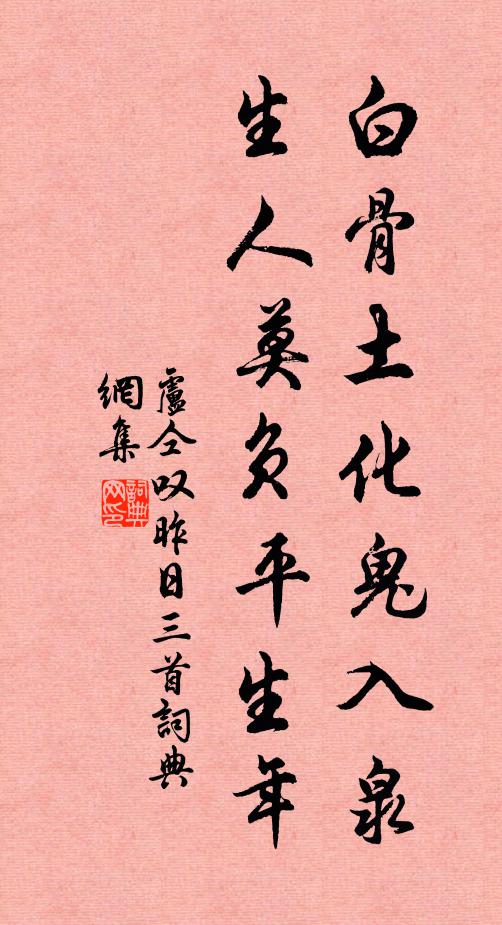 白骨土化鬼入泉
生人莫负平生年
盧仝叹昨日三首詞典
網集
詞典網印